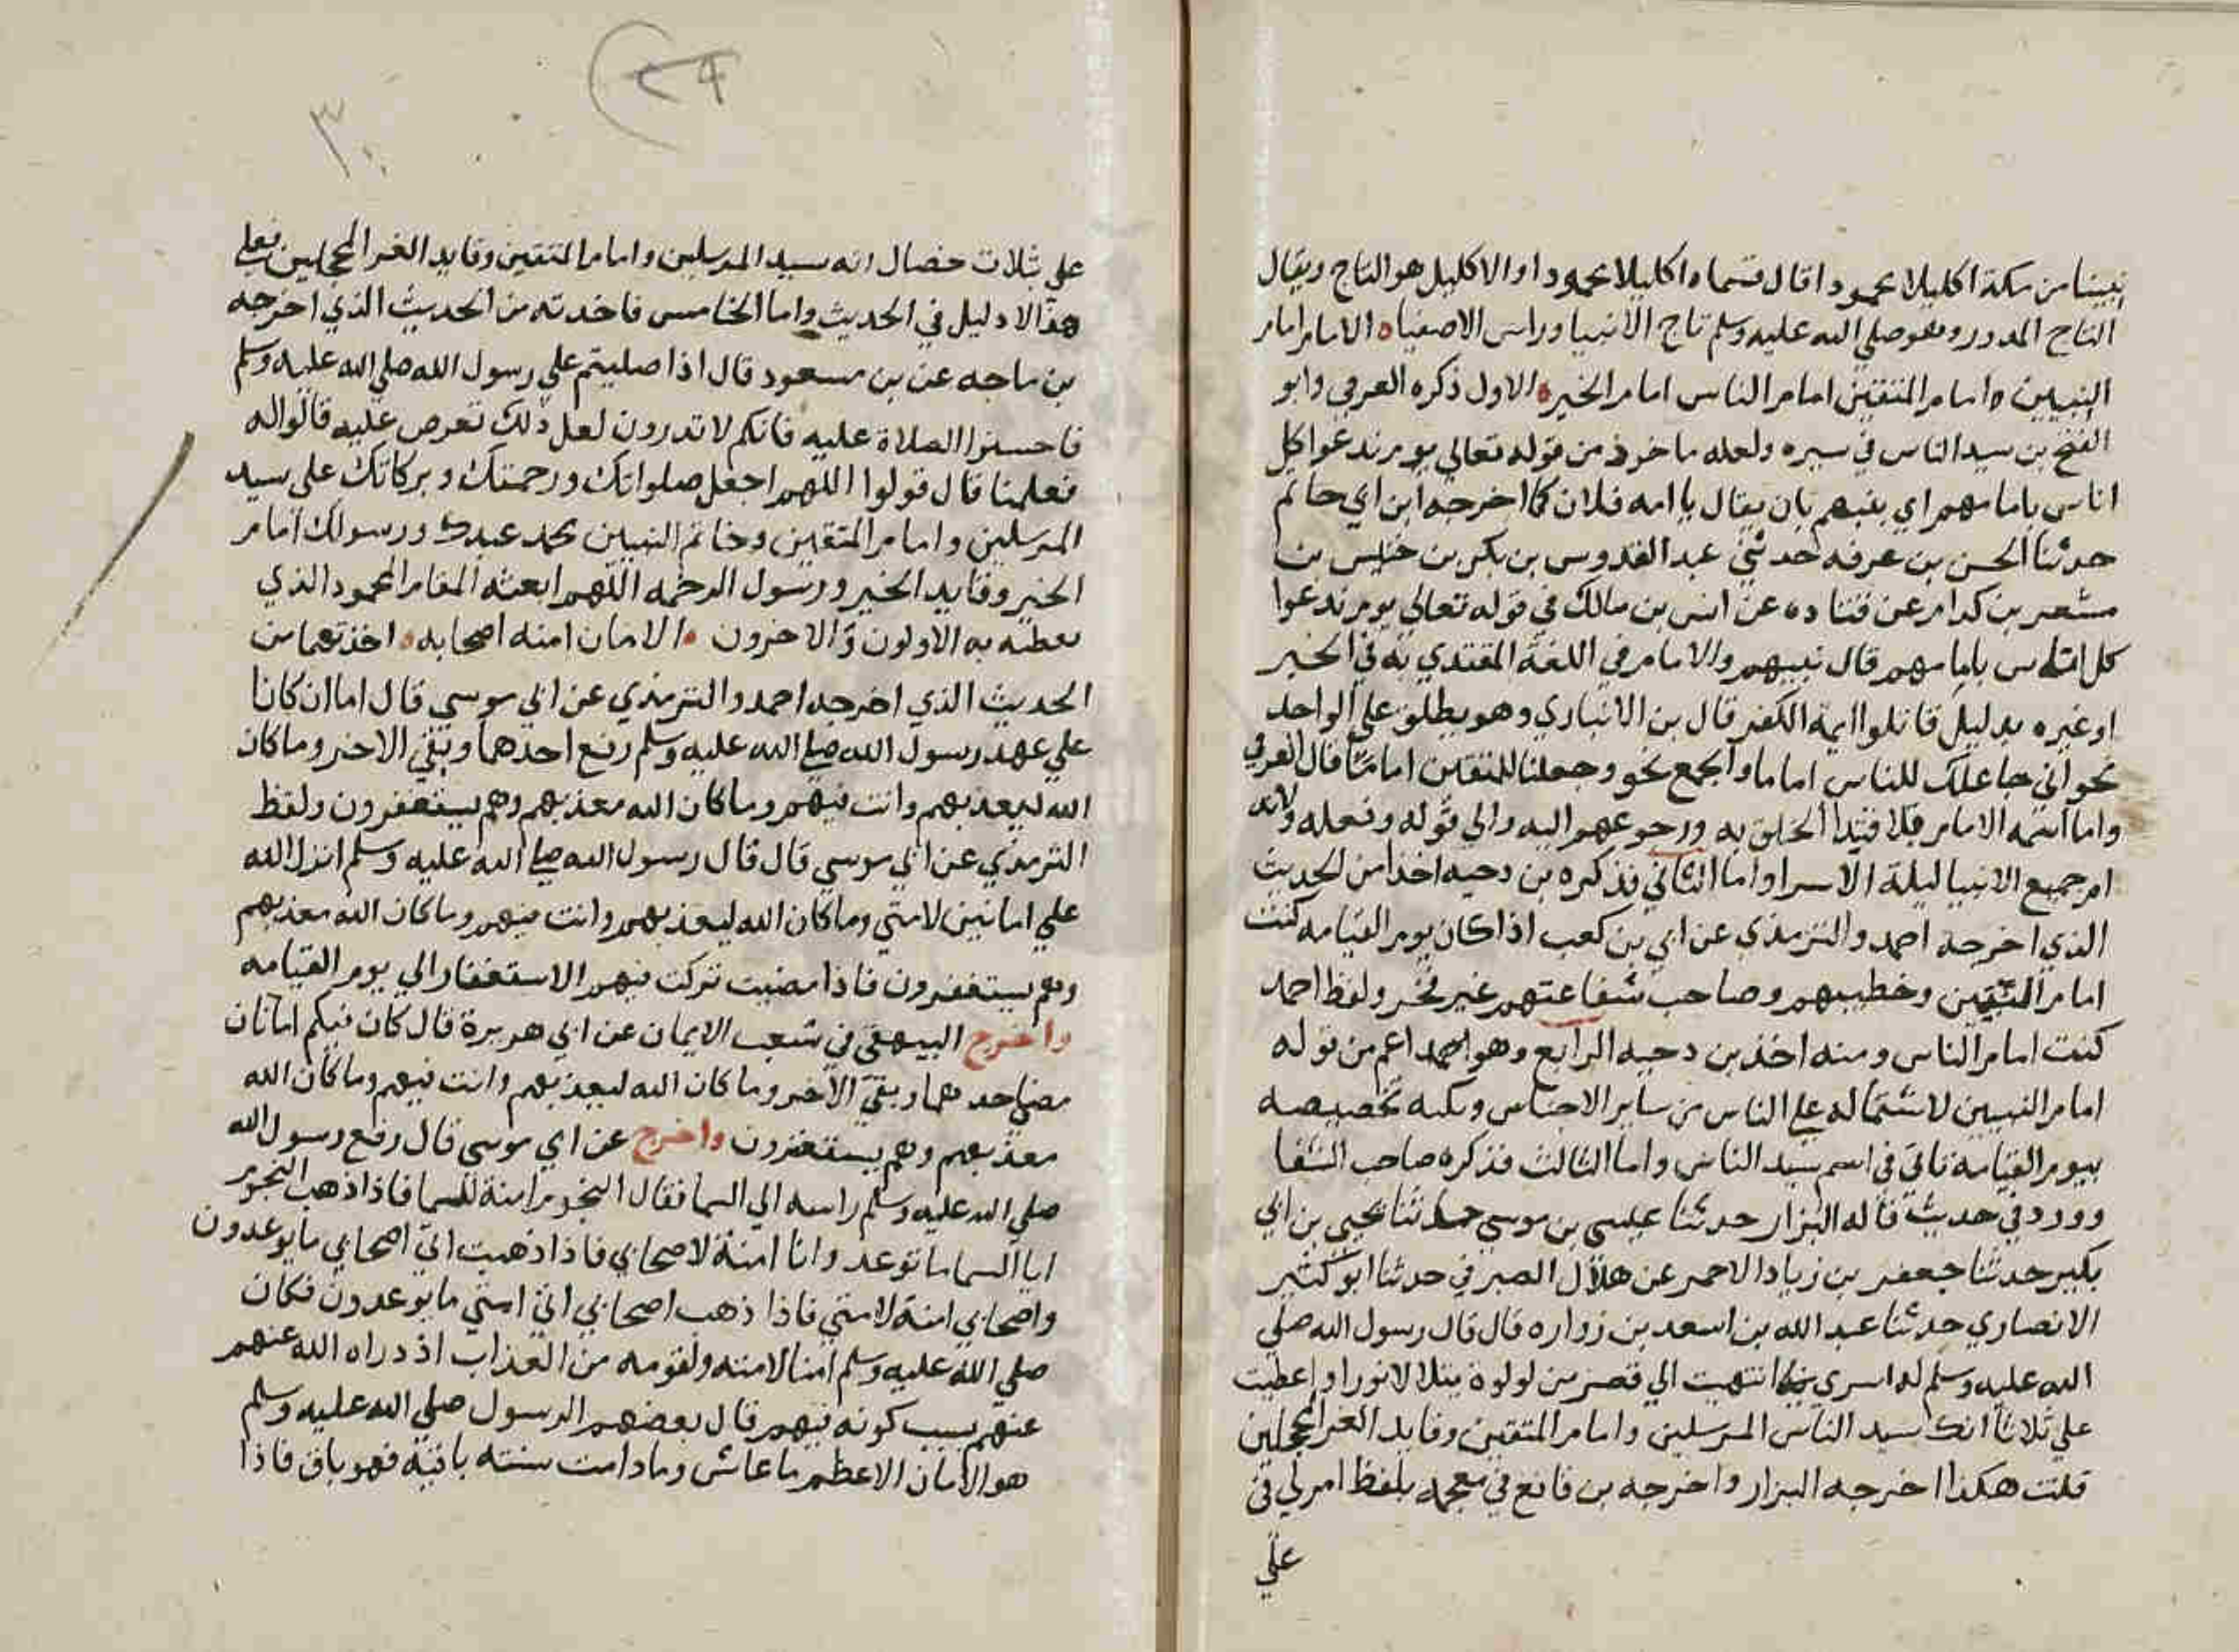 نبينا من مكة اكليلا محمودا قال فسماه اكليلا محمودا والاكليل هو التاج ويقال
التاج المدور وهو صلي الله عليه وسلم تاج الانبيا وراس الاصفيا ه الامام امام
النبيين ه امام المتقين امام الناس امام الخير ه الاول ذكره العزفي وابو
الفتح بن سيد الناس في سيره ولعله ماخوذ من قوله تعالي يوم ندعوا كل
اناس بامامهم اي بنبيهم بان يقال يا امه فلان كما اخرجه ابن ابي حاتم
حدثنا الحسن بن عرفه حدثني عبد القدوس بن بكر بن خنيس بن
مسعر بن كدام عن قتاده عن انس بن مالك في قوله تعالي يوم ندعوا
كل اناس بامامهم قال نبيهم والامام في اللغة المقتدي به في الخير
او غيره بدليل قاتلوا ايمة الكفر قال بن الانباري وهو يطلق علي الواحد
نحو اني جاعلك للناس اماما والجمع نحو وجعلنا للمتقين اماما قال العزفي
واما اسمه الامام فلاقتدا الخلق به ورجوعهم اليه والي قوله وفعله ولانه
ام جميع الانبيا ليلة الاسرا واما الثاني فذكره بن دحيه اخذا من الحديث
الذي اخرجه احمد والترمذي عن ابي بن كعب اذا كان يوم القيامه كنت
امام النبيين وخطيبهم وصاحب شفاعتهم غير فخر ولفظ احمد
كنت امام الناس ومنه اخذ بن دحيه الرابع وهو اعم من قوله
امام النبيين لاشتماله علي الناس من ساير الاجناس ونكته تخصيصه
بيوم القيامة تاتي في اسم سيد الناس واما الثالث فذكره صاحب الشفا
وورد في حديث قاله البزار حدثنا عيسي بن موسي حدثنا يحيي بن ابي
بكير حدثنا جعفر بن زياد الاحمر عن هلال الصيرفي حدثنا ابو كثير
الانصاري حدثنا عبد الله بن اسعد بن زراره قال قال رسول الله صلي
الله عليه وسلم لما اسري بي انتهيت الي قصر من لولوة يتلالا نورا واعطيت
علي ثلاثا انك سيد الناس المرسلين وامام المتقين وقايد الغر المحجلين
قلت هكذا اخرجه البزار واخرجه بن قانع في معجمه بلفظ امر لي في
علي
٢٩
٣٠
علي ثلاث خصال انه سيد المرسلين وامام المتقين وقايد الغر المحجلين فعلي
هذا لا دليل في الحديث واما الخامس فاخذته من الحديث الذي اخرجه
بن ماجه عن بن مسعود قال اذا صليتم علي رسول الله صلي الله عليه وسلم
فاحسنوا الصلاة عليه فانكم لا تدرون لعل ذلك تعرض عليه قالوا له
فعلمنا قال قولوا اللهم اجعل صلواتك ورحمتك وبركاتك علي سيد
المرسلين وامام المتقين وخاتم النبيين محمد عبدك ورسولك امام
الخير وقايد الخير ورسول الرحمه اللهم ابعثه المقام المحمود الذي
يغبطه به الاولون والاخرون ه الامان امنه اصحابه ه اخذتهما من
الحديث الذي اخرجه احمد والترمذي عن ابي موسي قال امانان كانا
علي عهد رسول الله صلي الله عليه وسلم رفع احدهما وبقي الاخر وما كان
الله ليعذبهم وانت فيهم وما كان الله معذبهم وهم يستغفرون ولفظ
الترمذي عن ابي موسي قال قال رسول الله صلي الله عليه وسلم انزل الله
علي امانين لامتي وما كان الله ليعذبهم وانت فيهم وما كان الله معذبهم
وهم يستغفرون فاذا مضيت تركت فيهم الاستغفار الي يوم القيامه
واخرج البيهقي في شعب الايمان عن ابي هريرة قال كان فيكم امانان
مضي احدهما وبقي الاخر وما كان الله ليعذبهم وانت فيهم وما كان الله
معذبهم وهم يستغفرون واخرج عن ابي موسي قال رفع رسول الله
صلي الله عليه وسلم راسه الي السما فقال النجوم امنة للسما فاذا ذهب النجوم
اتا السما ما توعد وانا امنة لاصحابي فاذا ذهبت اتي اصحابي ما يوعدون
واصحابي امنة لامتي فاذا ذهب اصحابي اتي امتي ما يوعدون فكان
صلي الله عليه وسلم امنا لامته ولقومه من العذاب اذ دراه الله عنهم
عنهم بسبب كونه فيهم قال بعضهم الرسول صلي الله عليه وسلم
هو الامان الاعظم ما عاش وما دامت سنته باقية فهو باق فاذا